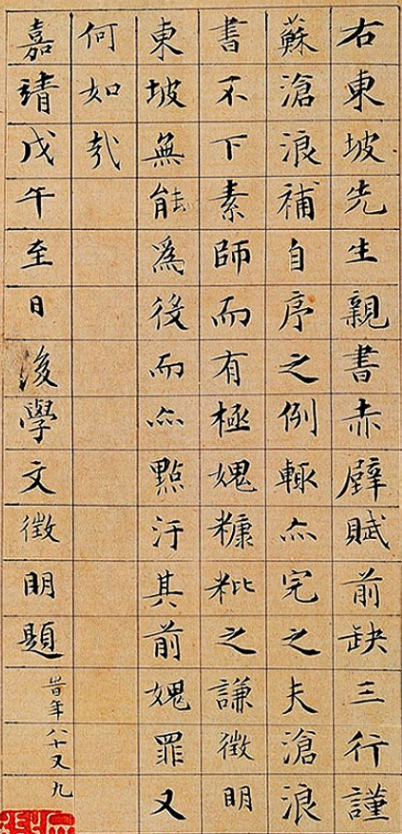 右東坡先生親書赤壁賦前缺三行謹
蘇滄浪補自序之例輒亦完之夫滄浪
書不下素師而有極媿糠粃之謙徵明
東坡無能爲役而亦點汙其前媿罪又
何如哉
嘉靖戊午至日後學文徵明題旹年八十又九